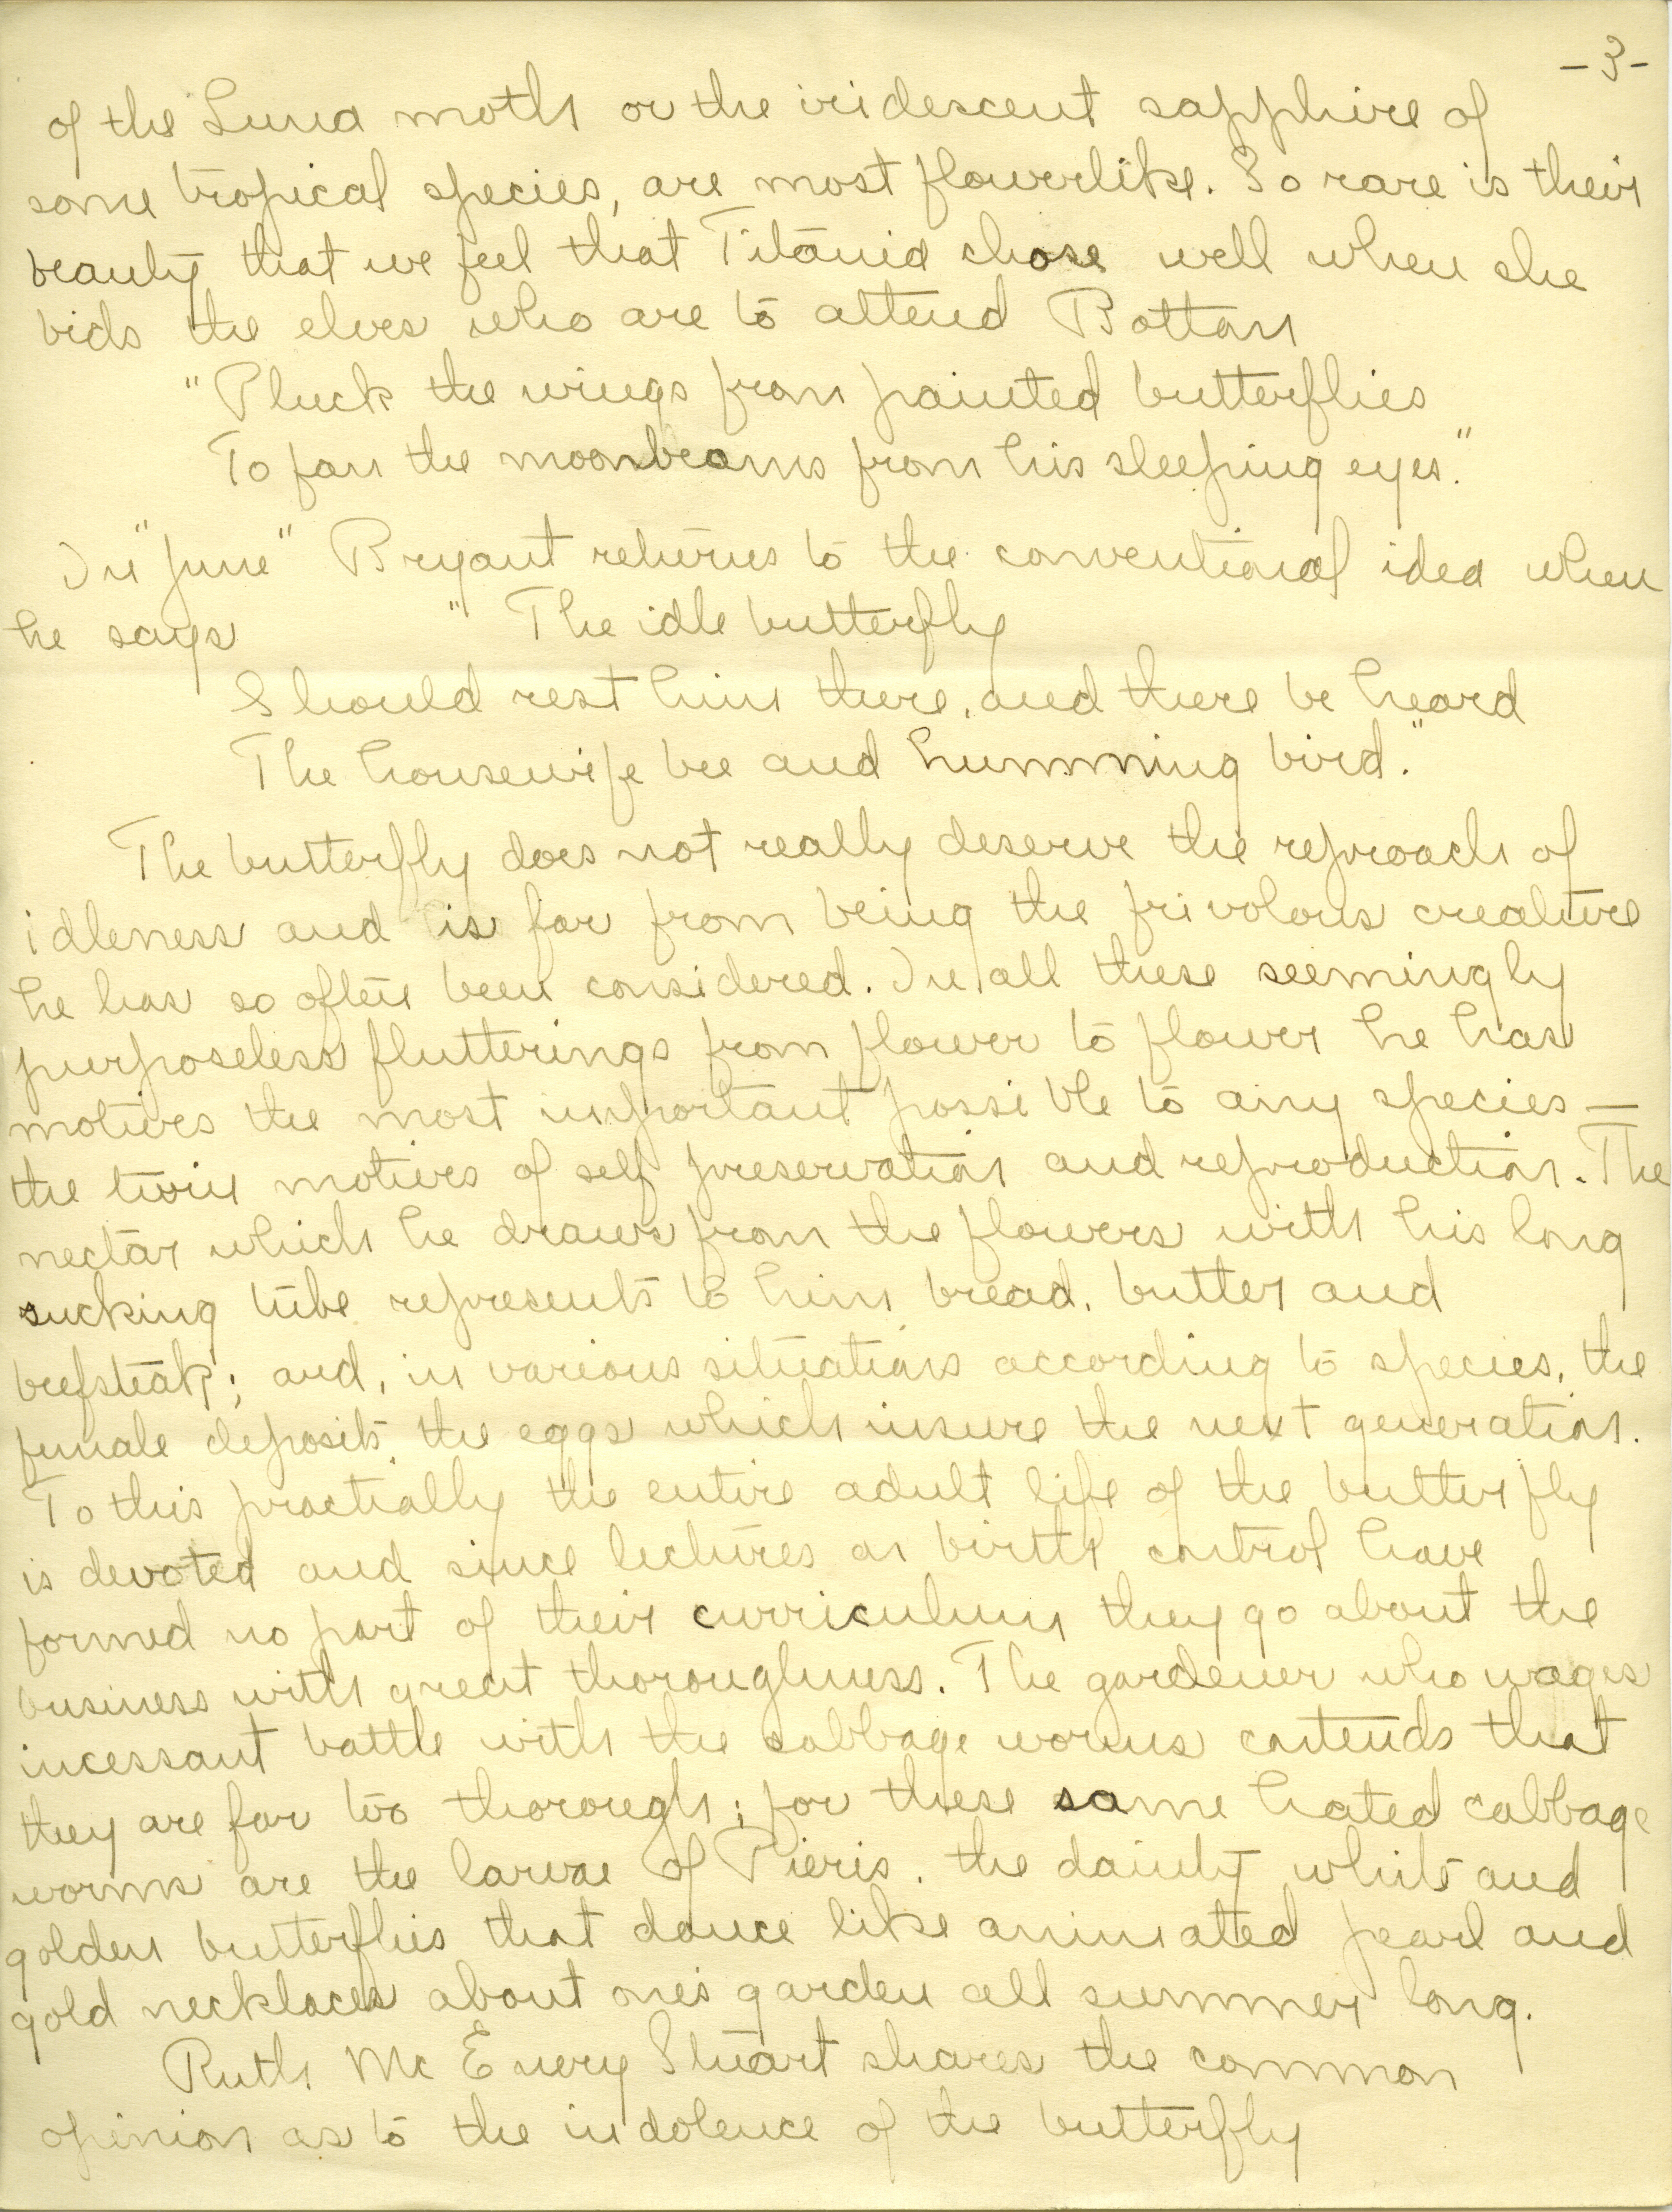 -3-
of the Luna moth or the iridescent sapphire of
some tropical species, are most flowerlike. So rare is their
beauty that we feel that Titania chose well when she
bids the elves who are to attend Bottom
"Pluck the wings from painted butterflies
To fan the moonbeams from his sleeping eyes."
In "June" Bryant returns to the conventional idea when
he says " The idle butterfly
Should rest him there, and there be heard
The housewife bee and humming bird."
The butterfly does not really deserve the reproach of
idleness and is far from being the frivolous creature
he has so often been considered. In all these seemingly
purposeless flutterings from flower to flower he has
motives the most important possible to any species —
the twin motives of self preservation and reproduction. The
nectar which he draws from the flowers with his long
sucking tube represents to him bread, butter and
beefsteak; and, in various situations according to species, the
female deposits the eggs which insure the next generation.
To this practially the entire adult life of the butterfly
is devoted and since lectures on birth control have
formed no part of their curriculum they go about the
business with great thoroughness. The gardener who wages
incessant battle with the cabbage worms contends that
they are far too thorough; for these same hated cabbage
worms are the larvae of Pieris, the dainty white and
golden butterflies that dance like animated pearl and
gold necklaces about one's garden all summer long.
Ruth Mc Enery Stuart shares the common
opinion as to the indolence of the butterfly